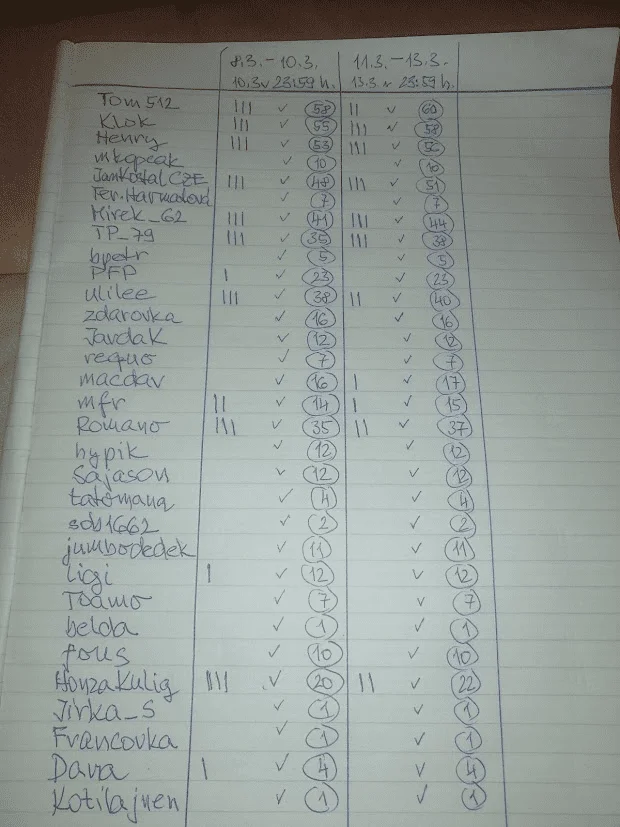 8.3. – 10.3. 11.3. – 13.3.
10.3 v 23:59 h. 13.3 v 23:59 h.
Tom512 III ✓ 58 II ✓ 60
Klok III ✓ 55 III ✓ 58
Henry III ✓ 53 III ✓ 56
mkopeak ✓ 10 ✓ 10
JamKostalCZE III ✓ 48 III ✓ 51
Fer.Harmadova ✓ 7 ✓ 7
Mirek_62 III ✓ 41 III ✓ 44
TP_79 III ✓ 35 III ✓ 38
bpetr ✓ 5 ✓ 5
PFP I ✓ 23 ✓ 23
ulilee III ✓ 38 II ✓ 40
zdarovka ✓ 16 ✓ 16
Jardak ✓ 12 ✓ 12
requo ✓ 7 ✓ 7
macdav ✓ 16 I ✓ 17
mfr II ✓ 14 I ✓ 15
Romano III ✓ 35 II ✓ 37
hypik ✓ 12 ✓ 12
Sajason ✓ 12 ✓ 12
tatomana ✓ 4 ✓ 4
sob1662 ✓ 2 ✓ 2
jumbodedek ✓ 11 ✓ 11
ligi I ✓ 12 ✓ 12
Toamo ✓ 7 ✓ 7
belda ✓ 1 ✓ 1
fous ✓ 10 ✓ 10
HonzaKulig IIII ✓ 20 II ✓ 22
Jirka_S ✓ 1 ✓ 1
Francovka ✓ 1 ✓ 1
Dava I ✓ 4 ✓ 4
Kotilajnen ✓ 1 ✓ 1